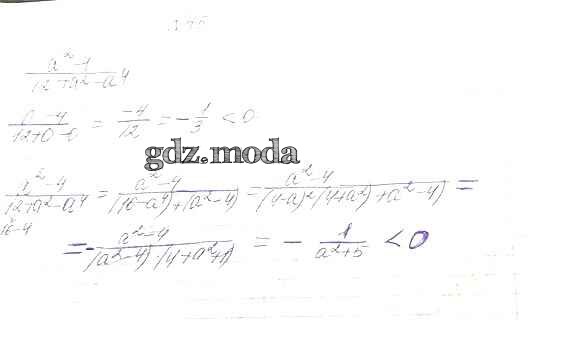 a² - 4
12 + a² - a⁴
0 - 4 / 12 + 0 - 0 = -4 / 12 = - 1/3 < 0
gdz.moda
a² - 4 / 12 + a² - a⁴ = a² - 4 / (16 - a⁴) + (a² - 4) = a² - 4 / (4 - a)² (4 + a²) + a² - 4) =
16 - 4
= - a² - 4 / (a² - 4) (4 + a² + 1) = - 1 / a² + 5 < 0